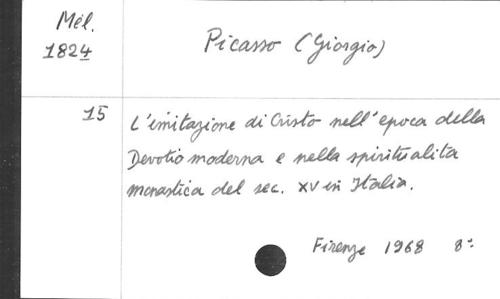 Mél.
1824
Picasso (Giorgio)
15
L'imitazione di Cristo nell'epoca della
Devotio moderna e nella spiritualita
monastica del sec. XV in Italia.
Firenze 1968 8°